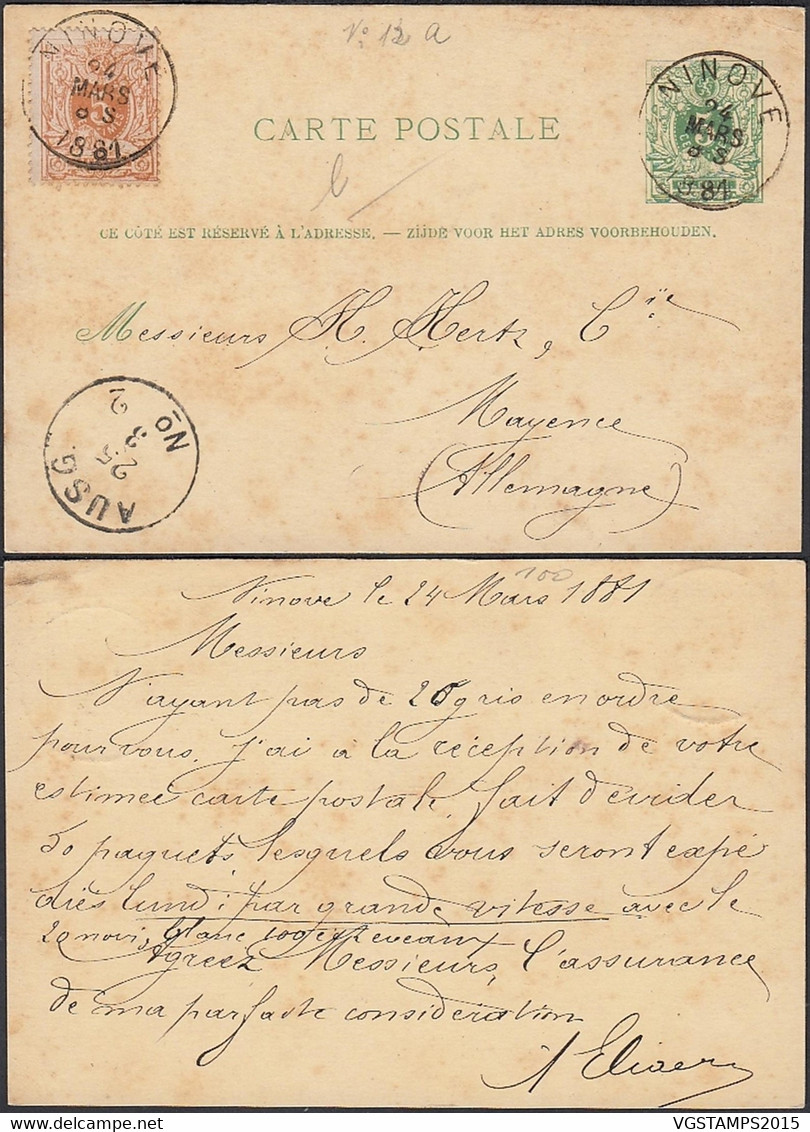 Nº 12 a
NINOVE
24
MARS
8 S
1881
CARTE POSTALE
NINOVE
24
MARS
8 S
1881
CE CÔTÉ EST RÉSERVÉ À L'ADRESSE. — ZIJDE VOOR HET ADRES VOORBEHOUDEN.
Messieurs H. Hertz, Cie
Mayence
(Allemagne)
AUSG.
25
3
2
No
100
Ninove le 24 Mars 1881
Messieurs
N'ayant pas de 20 gris en ordre
pour vous, j'ai à la réception de votre
estimée carte postale, fait dévider
50 paquets, lesquels vous seront expé
diés lundi par grande vitesse avec le
20 noir, blanc 100 écheveaux
Agreez Messieurs, l'assurance
de ma parfaite considération
VGSTAMPS2015